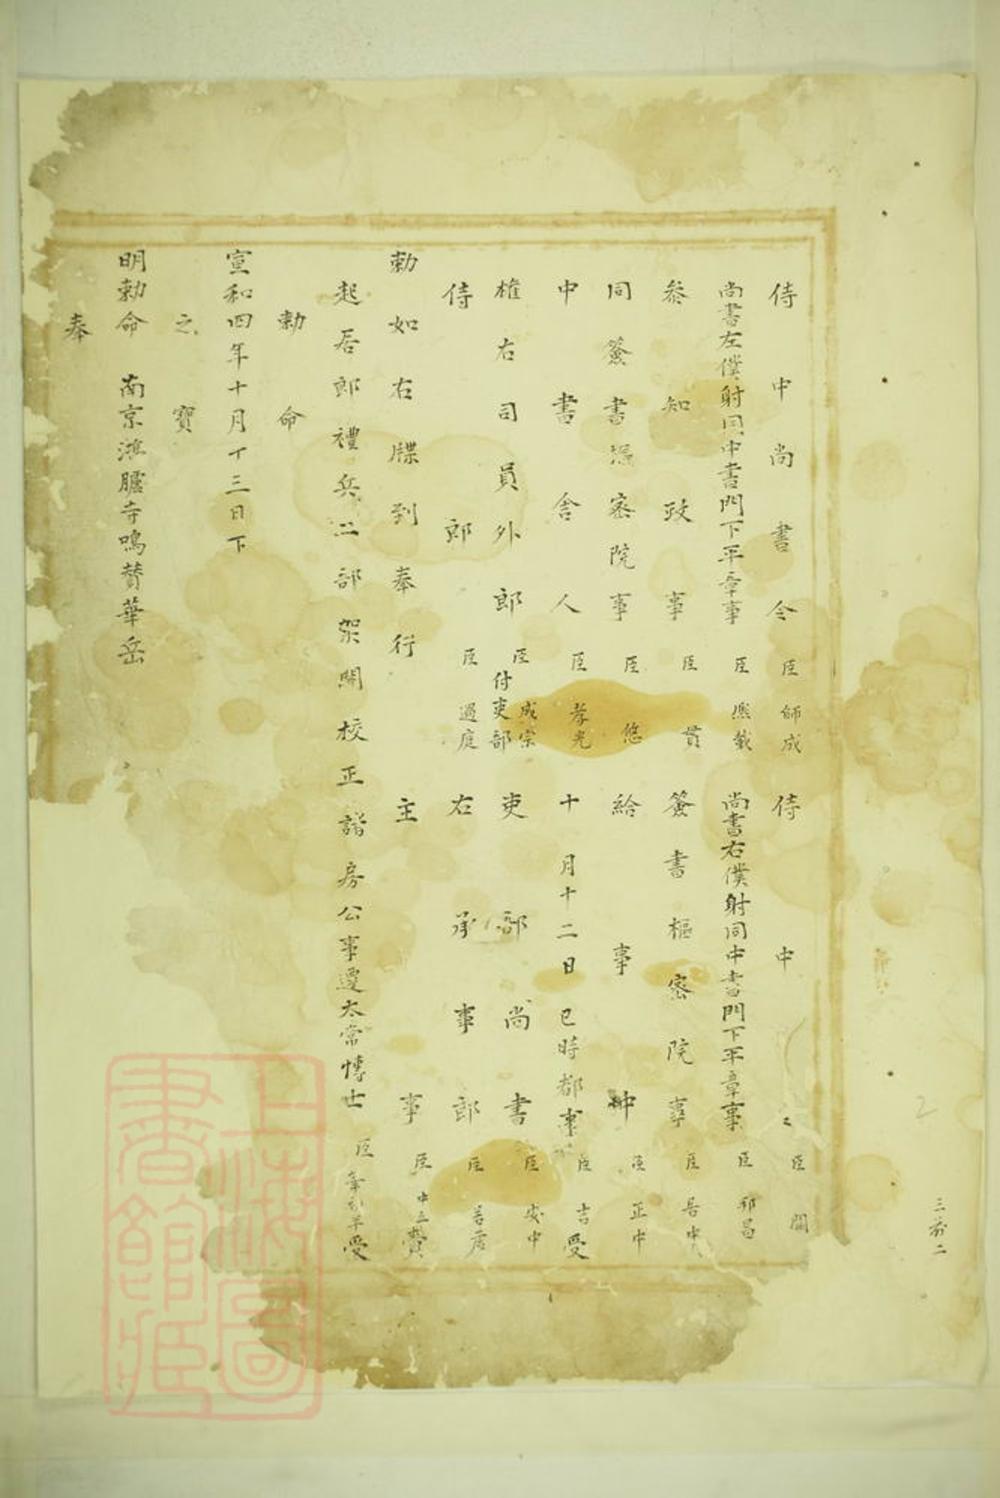 侍中尚書令臣師成 侍中臣閱
尚書左僕射同中書門下平章事臣熙載 尚書右僕射同中書門下平章事臣邦昌
參知政事臣貫 簽書樞密院事臣居中
同簽書樞密院事臣悠 給事中臣正中
中書舍人臣孝光 十月十二日巳時都事臣吉受
權右司員外郎臣成宗付吏部 吏部尚書臣安中
侍郎臣過庭 右承事郎臣善彥
勅如右牒到奉行 主事臣中立贊
起居郎禮兵二部架閣校正諸房公事遷太常博士臣受
勅命
宣和四年十月十三日下
之寶
明勅命 南京鴻臚寺鳴贊華岳
奉
三宗二
2
上海圖書館藏